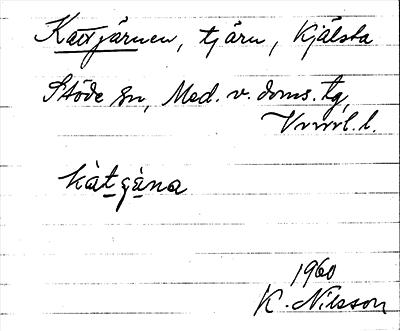 Kattjärnen, tjärn, Kjälsta
Stöde sn, Med. v. doms. tg,
Vrnrl. l.
kàtgàna
1960
K. Nilsson